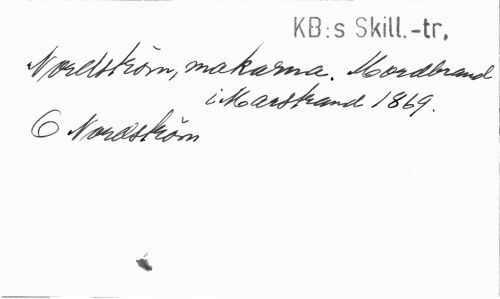 KB:s Skill.-tr.
Nordström, makarna. Mordbrand
i Marstrand 1869.
Nordström